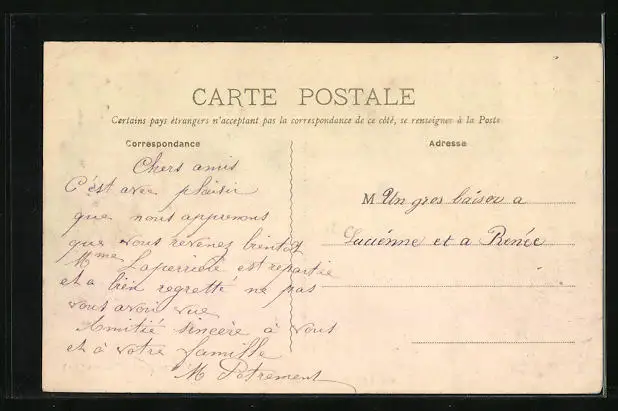 CARTE POSTALE
Certains pays étrangers n'acceptant pas la correspondance de ce côté, se renseigner à la Poste
Correspondance
Chers amis
C'est avec plaisir
que nous apprenons
que vous revenez bientot
Mme Laperriere est repartie
et a bien regretté ne pas
vous avoir vue
Amitié sincère à vous
et à votre famille
M Petrement
Adresse
M Un gros baiser a
Lucienne et a Renée